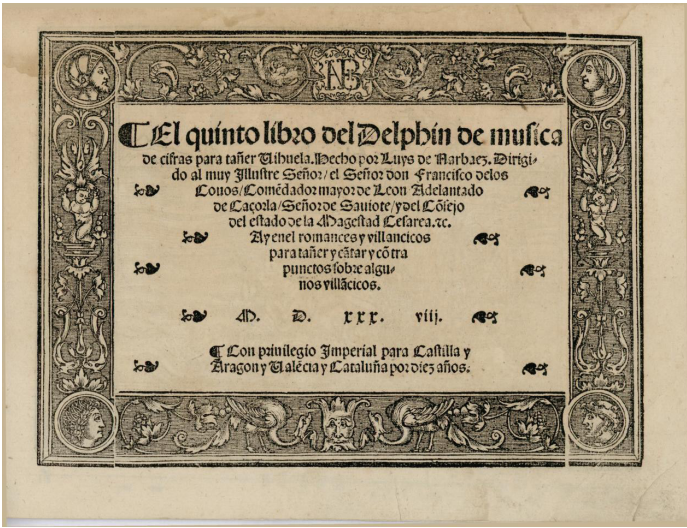 ¶ El quinto libro del Delphin de musica
de cifras para tañer Uihuela. Hecho por Luys de Narbaez. Dirigi-
do al muy Illustre Señor/ el Señor don Francisco delos
Couos/ Comẽdador mayor de Leon Adelantado
de Caçorla/ Señor de Sauiote/ y del Cõsejo
del estado de la Magestad Cesarea. ⁊c.
Ay enel romances y villancicos
para tañer y cãtar y cõtra
punctos sobre algu-
nos villãcicos.
M. D. xxx. viij.
¶ Con priuilegio Imperial para Castilla y
Aragon y Ualẽcia y Cataluña por diez años.